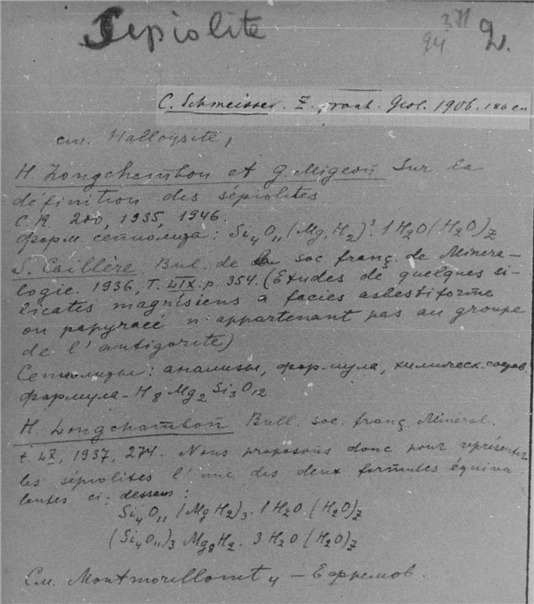 Sepiolite
2.
C. Schmeisser. Z. prakt. Geol. 1906.
см. Halloysite,
H. Longchambon et G. Migeon Sur la
définition des sépiolites
C.R. 200, 1935, 1946.
форм. сепиолита: Si4O11(Mg, H2)3 1H2O(H2O)Z
S. Caillère. Bul. de la soc franç. de Minera-
logie. 1936, T. LIX. p. 354. (Études de quelques si-
licates magnésiens à facies asbestiforme
ou papyracé n'appartenant pas au groupe
de l'antigorite)
анализы, формула, химическ.
формула - H8Mg2Si3O12
H. Longchambon Bull. soc. franç. Minéral.
1937, 274. Nous proposons donc pour représenter
les sépiolites l'une des deux formules équiva
lentes ci-dessous:
Si4O11(MgH2)3. 1H2O(H2O)Z
(Si4O11)3Mg8H2. 3H2O(H2O)Z
См. Montmorillonit — Ефремов.